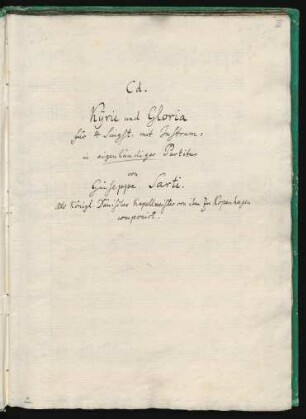 Cd.
Kÿrie und Gloria
für 4 Singst: mit Instrum:
in eigenhändiger Partitur
von
Giuseppe Sarti.
als Königl. Dänischer Kapellmeister von ihm zu Kopenhagen
componirt.